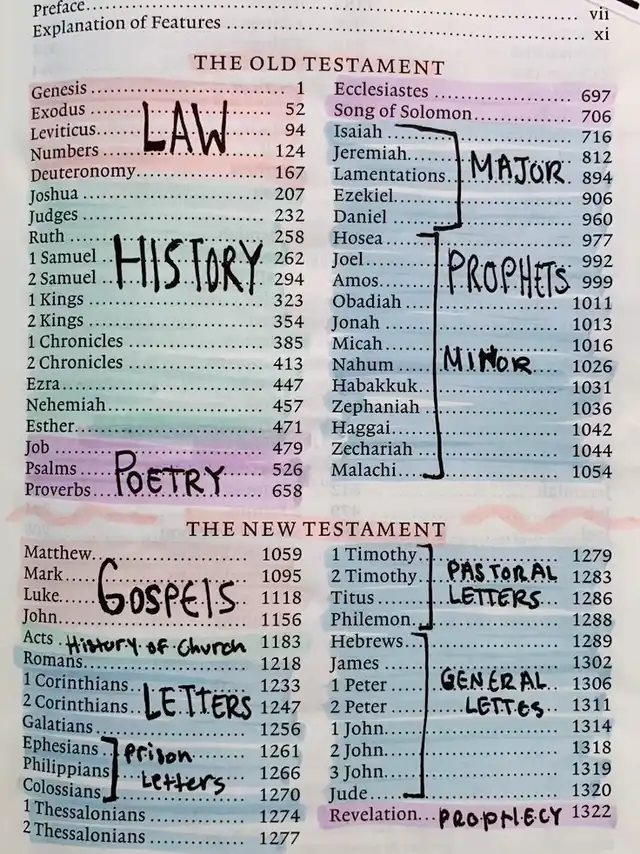 Preface ..... vii
Explanation of Features ..... xi
THE OLD TESTAMENT
Genesis ..... 1
Exodus ..... 52
Leviticus ..... 94
Numbers ..... 124
Deuteronomy ..... 167
LAW
Joshua ..... 207
Judges ..... 232
Ruth ..... 258
1 Samuel ..... 262
2 Samuel ..... 294
1 Kings ..... 323
2 Kings ..... 354
1 Chronicles ..... 385
2 Chronicles ..... 413
Ezra ..... 447
Nehemiah ..... 457
Esther ..... 471
HISTORY
Job ..... 479
Psalms ..... 526
Proverbs ..... 658
POETRY
Ecclesiastes ..... 697
Song of Solomon ..... 706
Isaiah ..... 716
Jeremiah ..... 812
Lamentations ..... 894
Ezekiel ..... 906
Daniel ..... 960
MAJOR
Hosea ..... 977
Joel ..... 992
Amos ..... 999
Obadiah ..... 1011
Jonah ..... 1013
Micah ..... 1016
Nahum ..... 1026
Habakkuk ..... 1031
Zephaniah ..... 1036
Haggai ..... 1042
Zechariah ..... 1044
Malachi ..... 1054
PROPHETS
MINOR
THE NEW TESTAMENT
Matthew ..... 1059
Mark ..... 1095
Luke ..... 1118
John ..... 1156
GOSPELS
Acts ..... History of Church 1183
Romans ..... 1218
1 Corinthians ..... 1233
2 Corinthians ..... 1247
Galatians ..... 1256
LETTERS
Ephesians ..... 1261
Philippians ..... 1266
Colossians ..... 1270
Prison
Letters
1 Thessalonians ..... 1274
2 Thessalonians ..... 1277
1 Timothy ..... 1279
2 Timothy ..... 1283
Titus ..... 1286
Philemon ..... 1288
PASTORAL
LETTERS
Hebrews ..... 1289
James ..... 1302
1 Peter ..... 1306
2 Peter ..... 1311
1 John ..... 1314
2 John ..... 1318
3 John ..... 1319
Jude ..... 1320
GENERAL
LETTES
Revelation ..... PROPHECY 1322